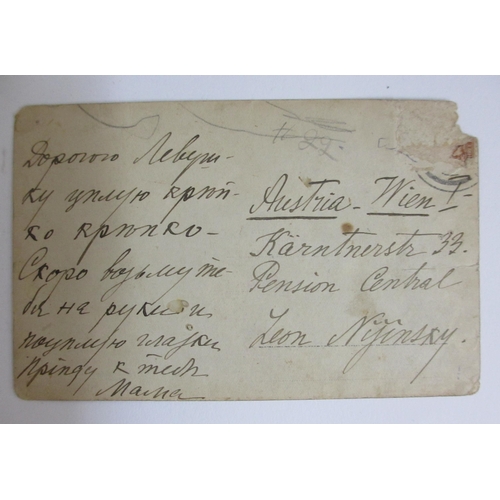 № 29.
Дорогого Левуш-
ку цѣлую крѣп-
ко крѣпко -
Скоро возьму те-
бя на руки и
поцѣлую глазки
Пріѣду к тебѣ
Мама
Austria - Wien I -
Kärntnerstr 33.
Pension Central
Leon Nijinsky.